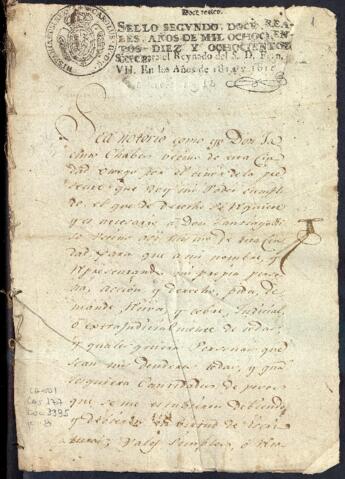 Doce reales.
1
SELLO SEGVNDO, DOCE REA-
LES, AÑOS DE MIL OCHOCIEN-
TOS DIEZ Y OCHOCIENTOS
el Reynado del S. D. Fern.
VII. En los Años de
Sea notorio como yo Don
Chabes vecino de esta Ciu
dad otorgo por el tenor de la pre
sente que doy mi Poder cumpli
do, el que de derecho se requiere
y es necesario a Don Santiago
Vecino asi mismo de esta Ciu
dad para que a mi nombre, y
representando mi propia perso
na, accion y derecho, pida, de
mande, Reciva, y cobre, Judicial,
ó extrajudicialmente de todas,
y qualesquiera Personas que
sean mis deudores todas, y qua
lesquiera Cantidades de pesos
que se me estubieren debiendo
y debieren en virtud de Escri
turas, Vales Simples, ó
CO-
Cas 177
Doc 3395